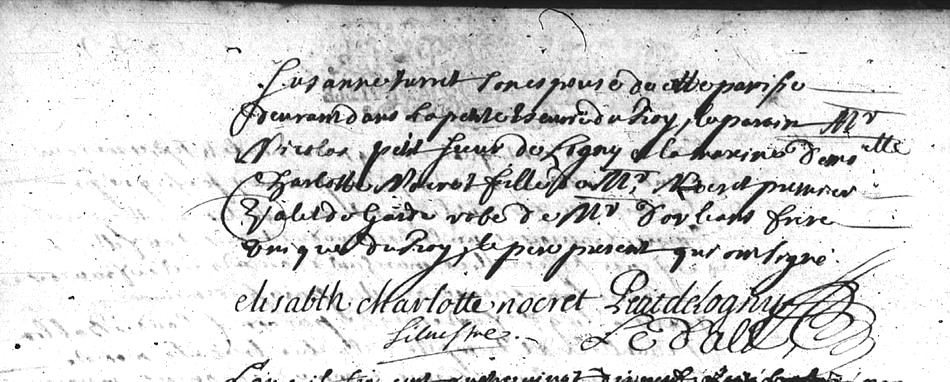 Susanne turret son espouse de cette paroisse
demeurant dans la petite Escurie du Roy, le parein Mr
Nicolas petit sieur de Logny et la mareine Demoille
Charlotte Nocret fille de Mr. Nocret premier
Valet de Garde robe de Mr D'orleans frere
Unique du Roy, le pere present qui ont signé.
elisabth charlotte nocret Petit de logny
Siluestre